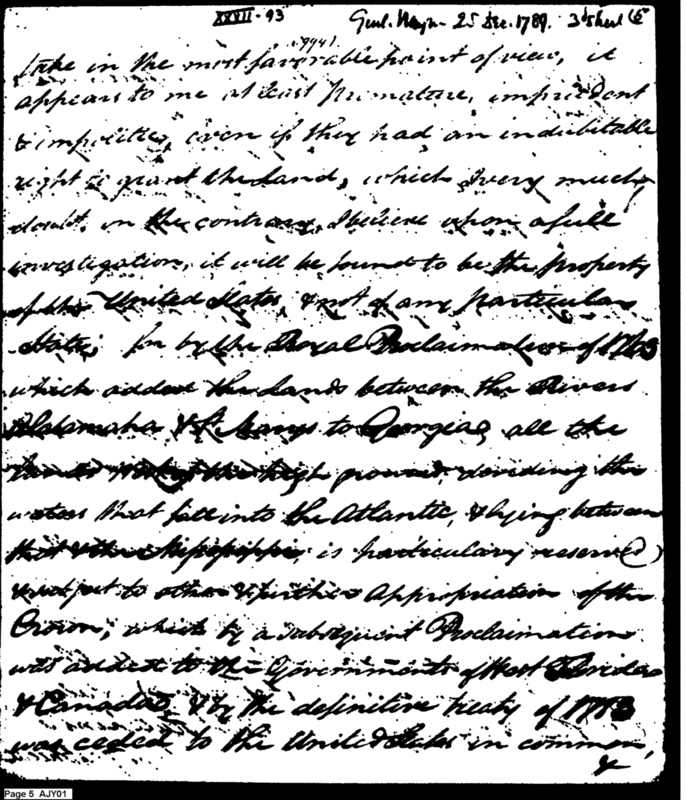 XXVII-93
Genl. Wayne 25 Dec. 1789. 3d sheet
take in the most favorable point of view, it
appears to me at least premature, imprudent
& impolitic, even if they had an indubitable
right to grant the Land, which I very much
doubt, on the contrary, I believe upon a full
investigation, it will be found to be the property
of the United States, & not of any particular
State; for by the Royal Proclamation of 1763
which added the Lands between the Rivers
Alatamaha & St. Marys to Georgia, all the
Lands West of the high ground, deviding the
waters that fall into the Atlantic, & lying between
that & the Mississippi, is particulary reserved
& subject to other & further Appropriation of the
Crown; which by a subsequent Proclamation
was added to the Governments of West Florida
& Canada, & by the definitive treaty of 1783
was ceded to the United States in common,
&
Page 5 AJY01